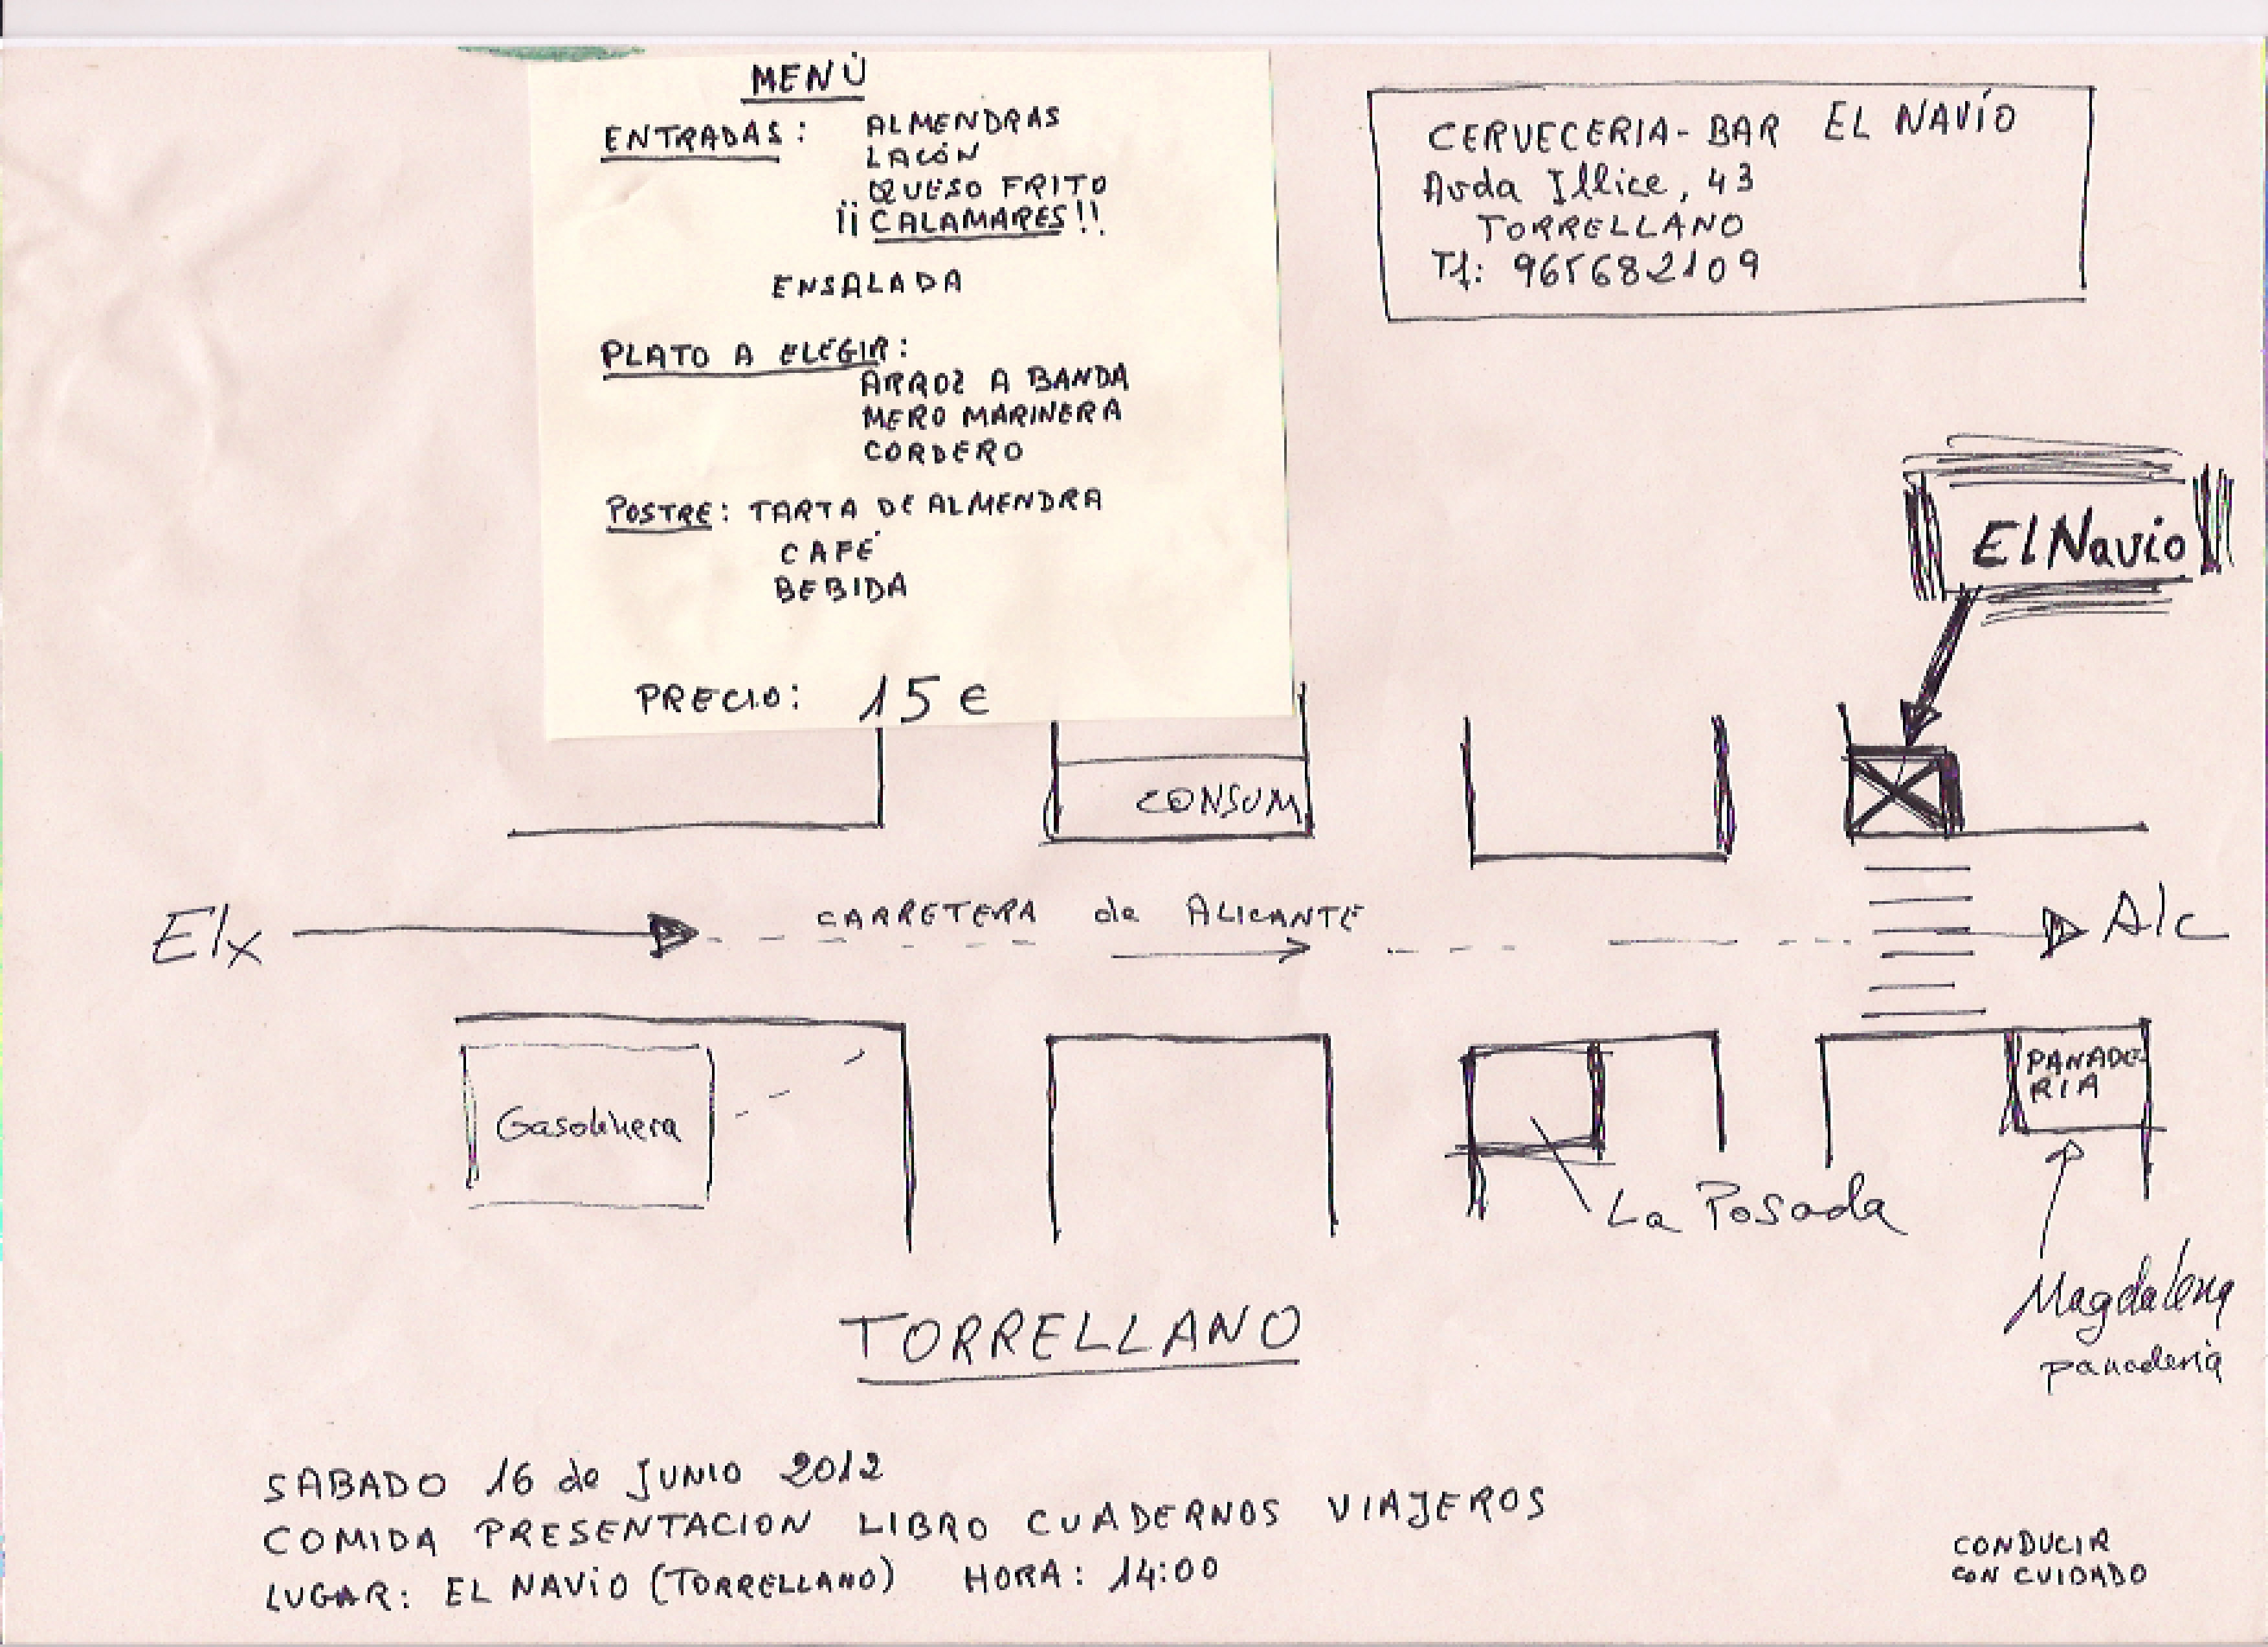 MENÚ
ENTRADAS: ALMENDRAS
LACÓN
QUESO FRITO
¡¡CALAMARES!!
ENSALADA
PLATO A ELEGIR:
ARROZ A BANDA
MERO MARINERA
CORDERO
POSTRE: TARTA DE ALMENDRA
CAFÉ
BEBIDA
PRECIO: 15 €
CERVECERIA-BAR EL NAVÍO
Avda Illice, 43
TORRELLANO
Tf: 965682109
El Navio
CONSUM
Elx
CARRETERA de ALICANTE
Alc
Gasolinera
La Posada
PANADE-
RIA
Magdalena
panaderia
TORRELLANO
SABADO 16 de JUNIO 2012
COMIDA PRESENTACION LIBRO CUADERNOS VIAJEROS
LUGAR: EL NAVÍO (TORRELLANO) HORA: 14:00
CONDUCIR
CON CUIDADO